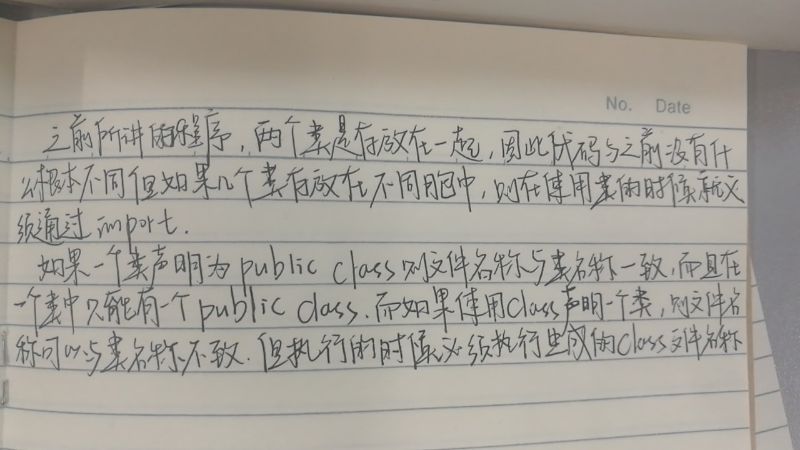 No. Date
之前所讲的程序,两个类是存放在一起,因此代码与之前没有什
么根本不同但如果几个类存放在不同胞中,则在使用类的时候就必
须通过 import.
如果一个类声明为 public class 则文件名称与类名称一致,而且在
一个类中只能有一个 public class. 而如果使用class声明一个类,则文件名
称可以与类名称不致.但执行的时候必须执行生成的class文件名称